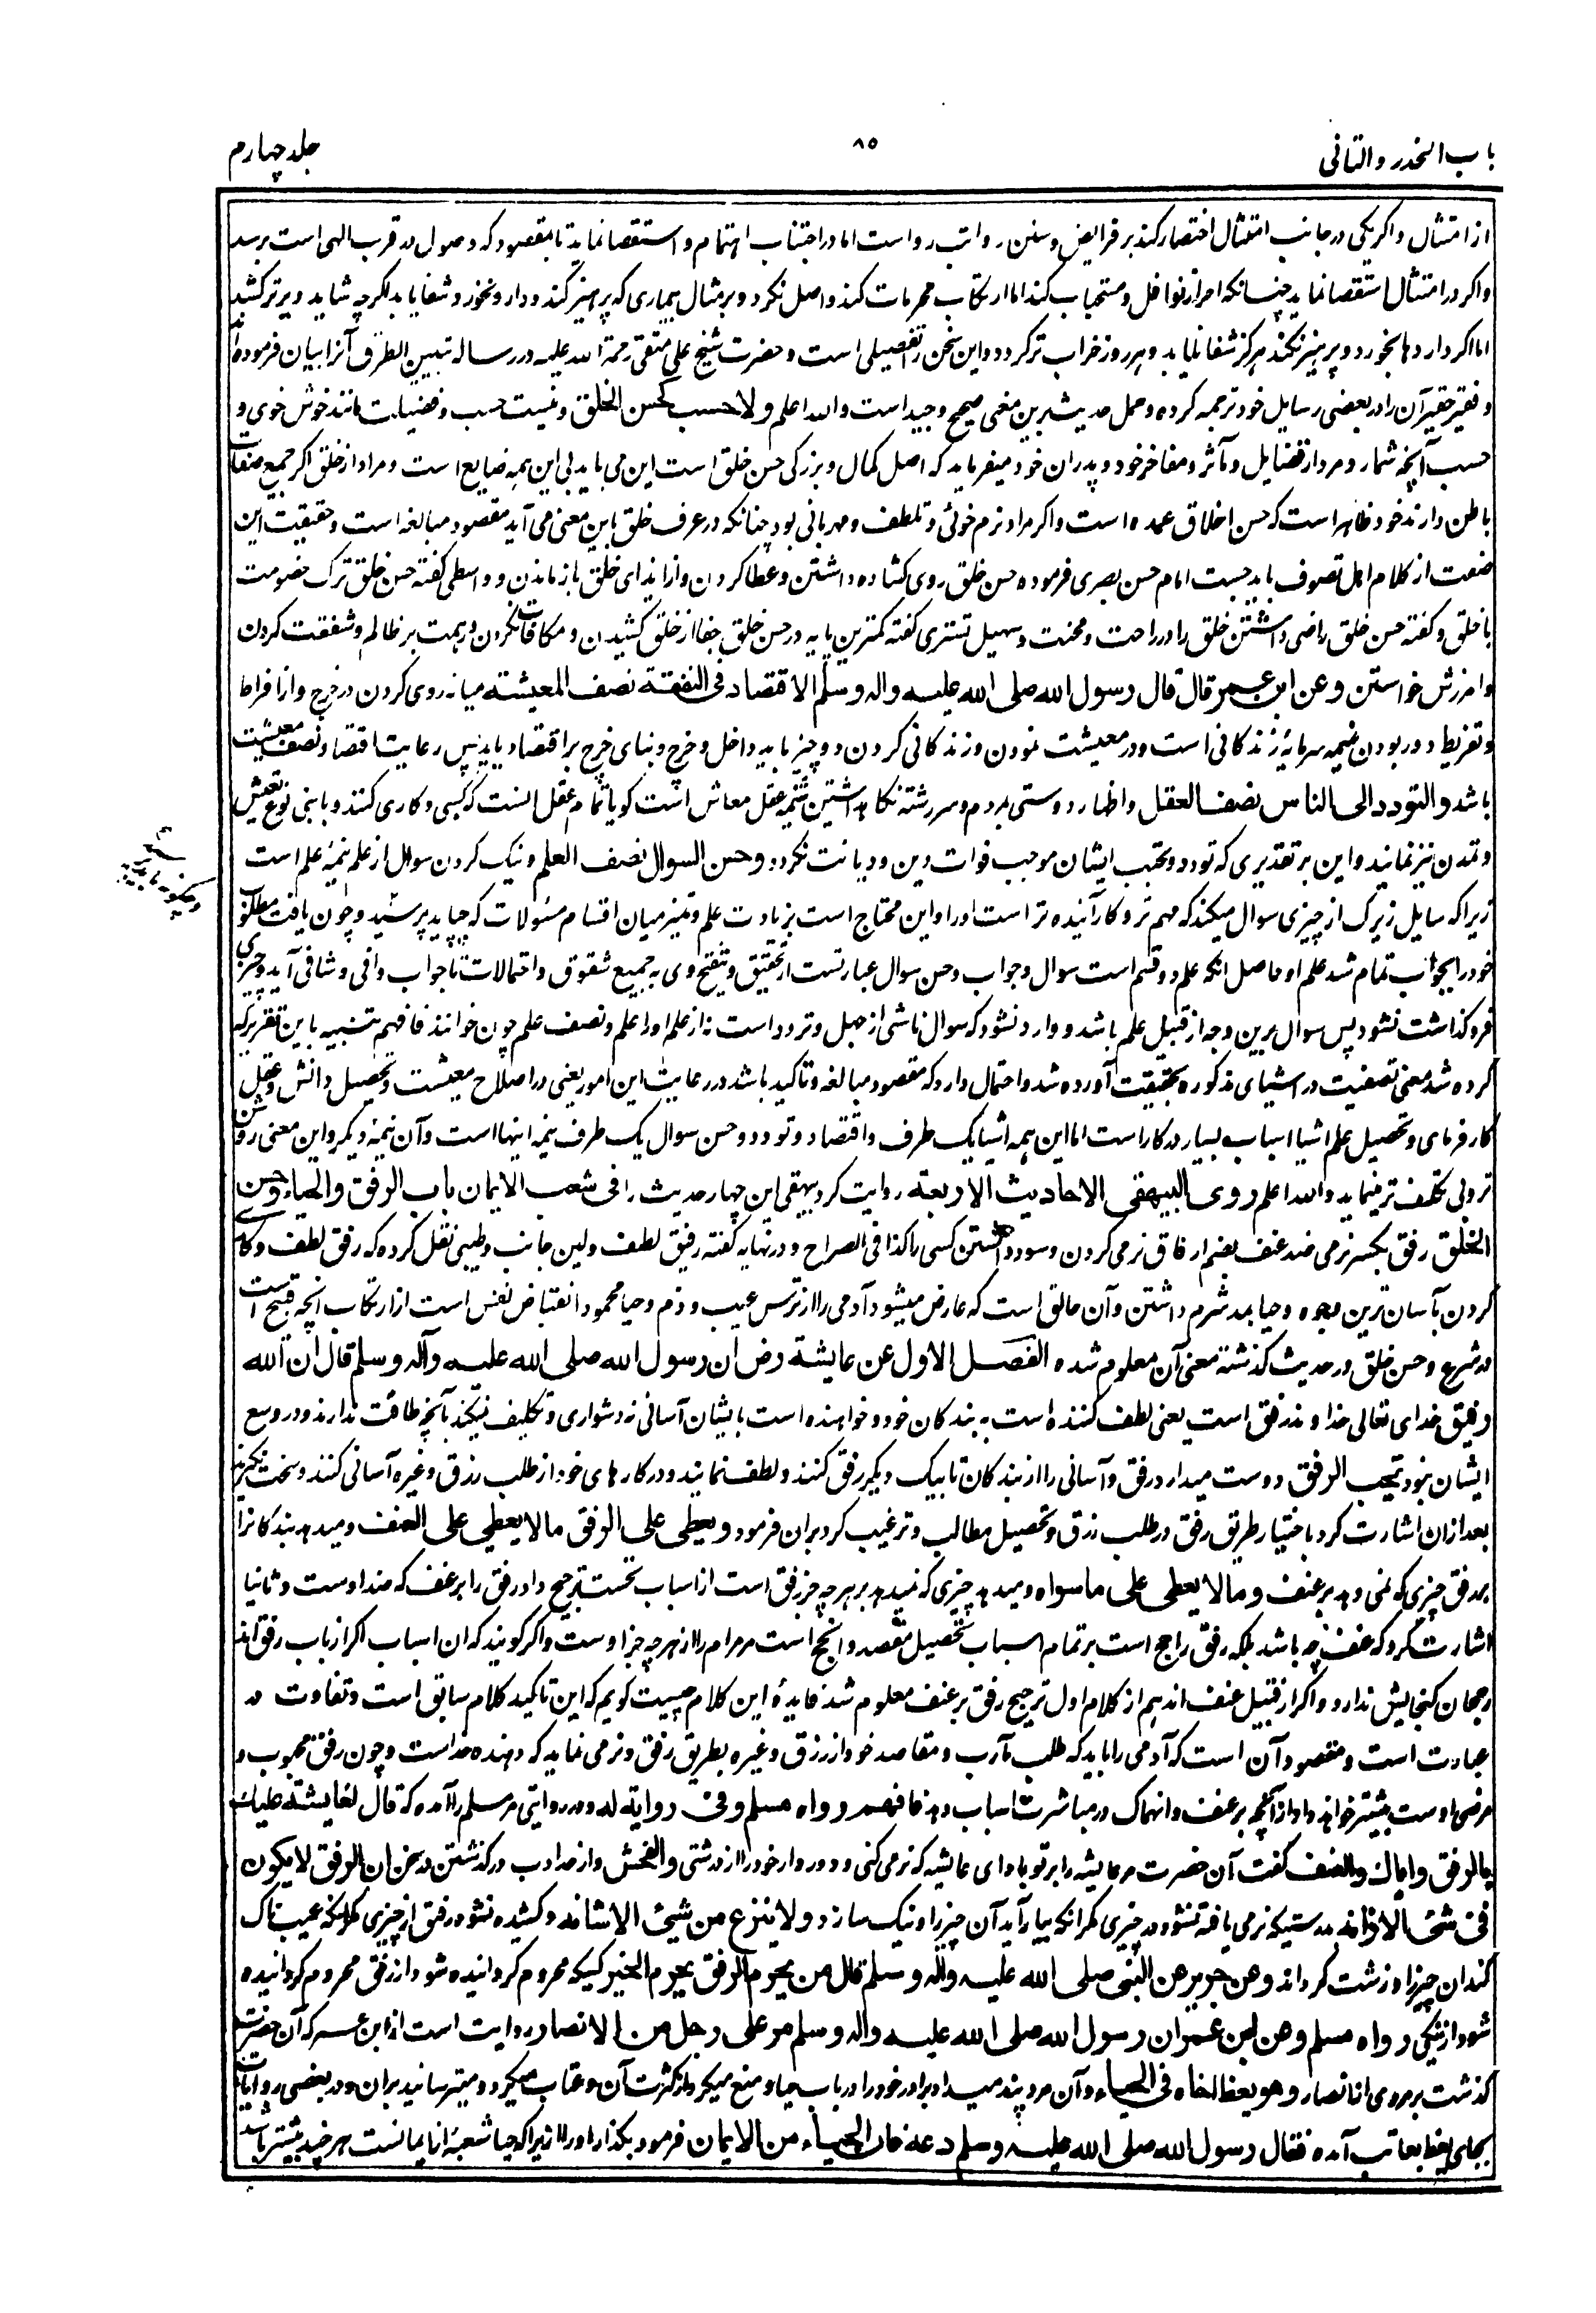 باب الحذر والتانی
۸۵
جلد چهارم
از امتثال و اگر یکی در جانب امتثال اختصار کند بر فرایض و سنن رواتب رواست اما در اجتناب اهتمام و استقصا نماید تا بمقصود که وصول بدرقرب الهی است برسد
و اگر در امتثال استقصا نماید چنانکه امرار نوافل و مستحبات کند اما ارتکاب محرمات کند واصل نگردد و بر مثال بیماری که پرهیز کند و دارو نخورد شفا یابد اگرچه شاید دیرتر کشد
اما اگر داروها بخورد و پرهیز نکند هرگز شفا نیابد و هر روز خراب تر گردد و این سخن را تفصیلی است و حضرت شیخ علی متقی رحمة الله علیه در رساله تبیین الطرق آنرا بیان فرموده اند
و فقیر حقیر آن را در بعضی رسایل خود ترجمه کرده و حمل حدیث برین معنی صحیح و جید است والله اعلم ولا حسب کحسن الخلق و نیست حسب و فضیلت مانند خوش خوی و
حسب آنچه شمارد مرد از فضایل و مآثر و مفاخر خود و پدران خود میفرماید که اصل کمال و بزرگی حسن خلق است این می باید بی این همه ضایع است و مراد از خلق اگر جمیع صفات
باطن دارند خود ظاهر است که حسن اخلاق عمده است و اگر مراد نرم خوئی و تلطف و مهربانی بود چنانکه در عرف خلق باین معنی می آید مقصود مبالغه است و حقیقت این
صفت از کلام اهل تصوف باید جست امام حسن بصری فرموده حسن خلق روی کشاده داشتن و عطا کردن و از ایذای خلق باز ماندن و واسطی گفته حسن خلق ترک خصومت
با خلق و گفته حسن خلق راضی داشتن خلق را در راحت و محنت و سهیل تستری گفته کمترین پایه در حسن خلق جفا از خلق کشیدن و مکافات نکردن و رحمت بر ظالم و شفقت کردن
وامرزش خواستن وعن ابن عمر قال قال رسول الله صلی الله علیه واله وسلم الاقتصاد فی النفقة نصف المعیشة میانه روی کردن در خرج و از افراط
و تفریط دور بودن نیمه سرمایهٔ زندگانی است و در معیشت نمودن و زندگانی کردن دو چیز باید داخل و خرج و بنای خرج بر اقتصاد باید پس رعایت اقتصاد نصف معیشت
باشد والتودد الی الناس نصف العقل و اظهار دوستی بمردم و سررشته نگاه داشتن نیمه عقل معاش است گویا تمام عقل انست که کسبی و کاری کنند و با بنی نوع تعیش
و تمدن نیز نمایند و این بر تقدیری که تودد و تحبب ایشان موجب فوات دین و دیانت نگردد وحسن السوال نصف العلم و نیک کردن سوال از علم نیمهٔ علم است
زیرا که سایل زیرک از چیزی سوال میکند که مهم تر و کار آینده تر است اورا و این محتاج است بزیادت علم و تمیز میان اقسام مسئولات که چه باید پرسید و چون یافت مطلوب
خود را بجواب تمام شد علم او حاصل انکه علم دو قسم است سوال و جواب و حسن سوال عبارتست از تحقیق و تنقیح وی به جمیع شقوق و احتمالات تا جواب وافی و شافی آید و چیزی
فرو گذاشت نشود پس سوال برین وجه از قبیل علم باشد و وارد نشود که سوال ناشی از جهل و تردد است نه از علم اورا علم و نصف علم چون خوانند فافهم تنبیه باین تقریر که
کرده شد معنی نصفیت در اشیای مذکوره بحقیقت آورده شد و احتمال دارد که مقصود مبالغه و تاکید باشد در رعایت این امور یعنی در اصلاح معیشت و تحصیل دانش و عقل
کار فرمای و تحصیل علم اشیا اسباب بسیار در کار است اما این همه اشیا یک طرف و اقتصاد و تودد و حسن سوال یک طرف نیمه اینها است و آن نیمهٔ دیگر و این معنی روشن
تر و بی تکلف تر مینماید والله اعلم روی البیهقی الاحادیث الاربعة روایت کرد بیهقی این چهار حدیث را فی شعب الایمان باب الرفق والحیاء وحسن
الخلق رفق بکسر نرمی ضد عنف بضم ارفاق نرمی کردن و سود داشتن کسی را کذا فی الصراح و در نهایه گفته رفق لطف و لین جانب و طیبی نقل کرده که رفق لطف و کار
کردن بآسان ترین وجوه و حیا بمد شرم داشتن و آن حالتی است که عارض میشود آدمی را از ترس عیب و ذم و حیا محمود انقباض نفس است از ارتکاب انچه قبیح است
در شرع و حسن خلق در حدیث گذشته معنی آن معلوم شده الفصل الاول عن عایشة رض ان رسول الله صلی الله علیه وآله وسلم قال ان الله
رفیق خدای تعالی خداوند رفق است یعنی لطف کننده است به بندگان خود و خواهنده است بایشان آسانی نه دشواری و تکلیف نمیکند بآنچه طاقت ندارند و در وسع
ایشان نبود یحب الرفق دوست میدارد رفق و آسانی را از بندگان تا بیک دیگر رفق کنند و لطف نمایند و در کارهای خود از طلب رزق و غیره آسانی کنند و سخت نگیرند
بعد ازان اشارت کرد باختیار طریق رفق در طلب رزق و تحصیل مطالب و ترغیب کرد بران فرمود ویعطی علی الرفق مالا یعطی علی العنف و میدهد بندگانرا
بر رفق چیزی که نمی دهد بر عنف ومالا یعطی علی ماسواه و میدهد چیزی که نمیدهد بر هر چه جز رفق است از اسباب نخست ترجیح داد رفق را بر عنف که ضد اوست و ثانیا
اشارت کرد که عنف چه باشد بلکه رفق راجح است بر تمام اسباب تحصیل مقصد و انجح است مر مرام را از هر چه جز اوست و اگر گویند که ان اسباب اگر از باب رفق اند
رجحان گنجایش ندارد و اگر از قبیل عنف اند هم از کلام اول ترجیح رفق بر عنف معلوم شد فایدهٔ این کلام چیست گویم که این تاکید کلام سابق است و تفاوت در
عبارت است و مقصود آن است که آدمی را باید که طلب مآرب و مقاصد خود از رزق و غیره بطریق رفق و نرمی نماید که دهنده خداست و چون رفق محبوب و
مرضی اوست بیشتر خواهد داد از آنچه بر عنف و انهماک در مباشرت اسباب دهد فافهم رواه مسلم وفی روایة له و در روایتی مر مسلم را آمده که قال لعایشة علیک
بالرفق وایاک والعنف گفت آن حضرت مر عایشه را بر تو باد ای عایشه که نرمی کنی و دور دار خود را از درشتی والفحش و از حد ادب در گذشتن در سخن ان الرفق لا یکون
فی شئ الا زانه بدرستیکه نرمی یافته نشود در چیزی مگر انکه بیاراید آن چیز را و نیک سازد ولا ینزع من شیئ الا شانه و کشیده نشود رفق از چیزی مگر انکه عیب ناک
کند ان چیز را و زشت گرداند وعن جریر عن النبی صلی الله علیه واله وسلم قال من یحرم الرفق یحرم الخیر کسیکه محروم گردانیده شود از رفق محروم گردانیده
شود از نیکی رواه مسلم وعن ابن عمر ان رسول الله صلی الله علیه واله وسلم مر علی رجل من الانصار روایت است از ابن عمر که آن حضرت
گذشت بر مردی از انصار وهو یعظ اخاه فی الحیاء و آن مرد پند میداد برادر خود را در باب حیا و منع میکرد از کثرت آن و عتاب میکرد و میترسانید بران و در بعضی روایات
بجای یعظ یعاتب آمده فقال رسول الله صلی الله علیه وسلم دعه فان الحیاء من الایمان فرمود بگذار اورا زیرا که حیا شعبهٔ از ایمانست هر چند بیشتر باشد